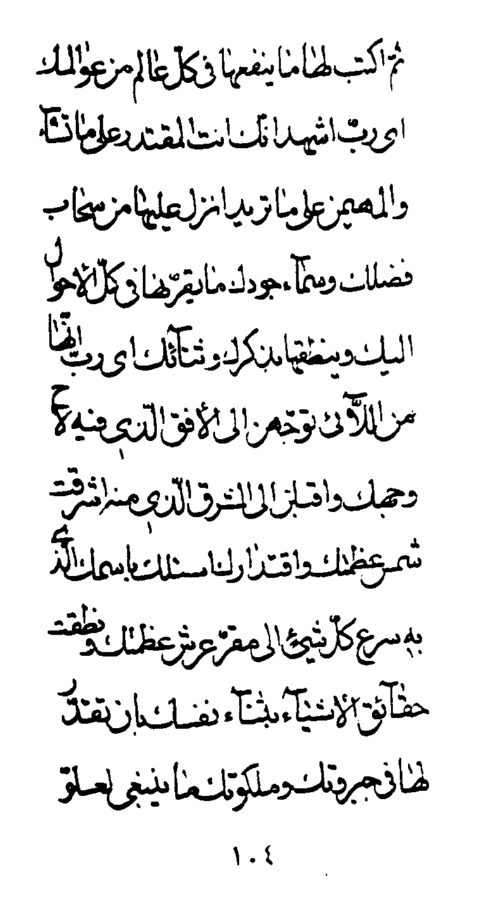 ثمّ اكتب لها ما ينفعها فى كلّ عالم من عوالمك
اى ربّ اشهد انّك انت المقتدر على ما تشآء
والمهيمن على ما تريد انزل عليها من سحاب
فضلك وسمآء جودك ما يقرّبها فى كلّ الاحوال
اليك وينطقها بذكرك وثنآئك اى ربّ انّها
من اللّآئى توجّهن الى الأفق الّذى فيه لاح
وجهك واقبلن الى الشرق الّذى منه اشرقت
شمس عظمتك واقتدارك اسئلك باسمك الّذى
به سرع كلّ شيئ الى مقرّ عرش عظمتك ونطقت
حقآئق الأشيآء بثنآء نفسك بان تقدّر
لها فى جبروتك وملكوتك ما ينبغى لعلوّ
١٠٤